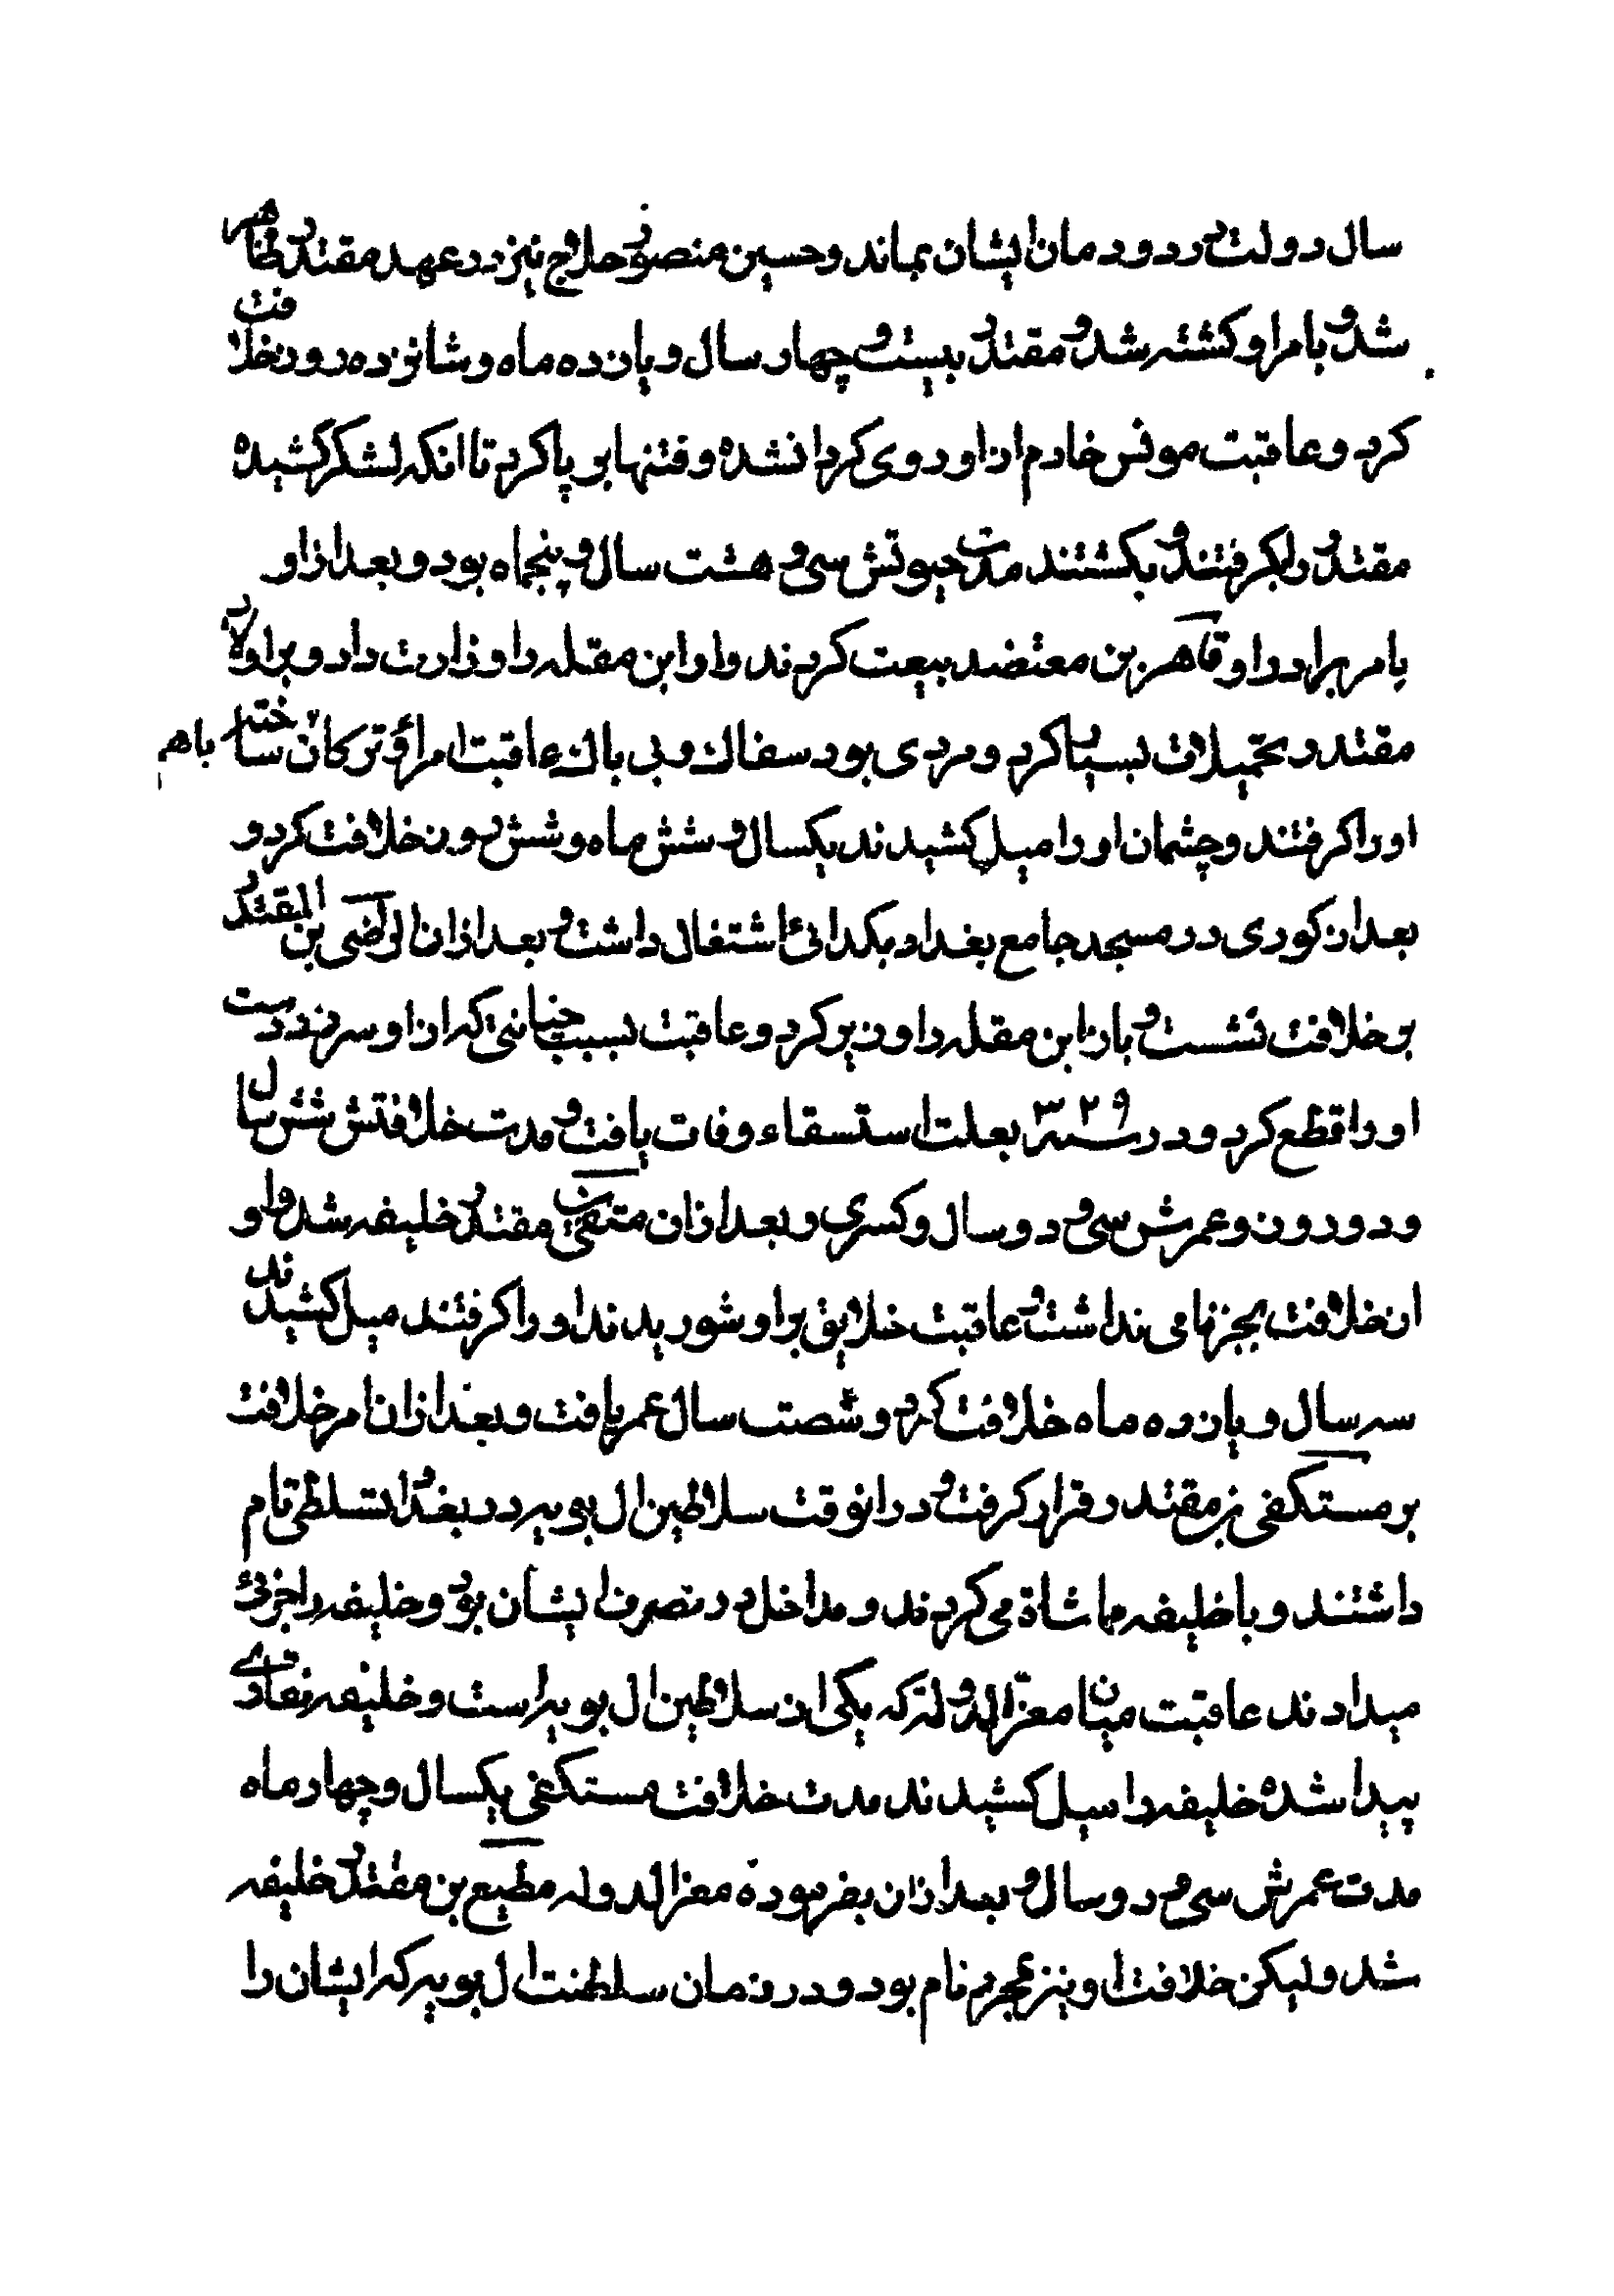 سال دولت در دودمان ایشان بماند و حسین منصور حلاج نیز در عهد مقتدر ظاهر
شد و بامر او کشته شد و مقتدر بیست و چهار سال و یازده ماه و شانزده روز خلافت
کرد و عاقبت مونس خادم از او روی کردانشده و فتنها بر پا کرد تا انکه لشکر کشیده
مقتدر را بکرفتند و بکشتند مدت حیوتش سی و هشت سال و پنجماه بود و بعد از او
بامر برادر او قاهر بن معتضد بیعت کردند و او ابن مقله را وزارت داد و بر اولاد
مقتدر تحمیلات بسیار کرد و مردی بود سفاك و بی باك عاقبت امراؤ ترکان ساخته باهم
او را کرفتند و چشمان او را میل کشیدند یکسال و شش ماه و شش روز خلافت کرد و
بعد از کوری در مسجد جامع بغداد بکدائ اشتغال داشت و بعد از ان الراضی بن المقتدر
بر خلافت نشست و باز ابن مقله را وزیر کرد و عاقبت بسبب جنایتی که از او سر زد دست
او را قطع کرد و در سنه ۳۲۹ بعلت استسقاء وفات یافت و مدت خلافتش شش سال
و دو روز و عمرش سی و دو سال و کسری و بعد از ان متقی بن مقتدر خلیفه شد و او
از خلافت بجز نامی نداشت و عاقبت خلایق بر او شوریدند او را کرفتند میل کشیدند
سه سال و یازده ماه خلافت کرد و شصت سال عمر یافت و بعد از ان امر خلافت
بر مستکفی بن مقتدر قرار کرفت و در انوقت سلاطین ال بویه در بغداد تسلطی تام
داشتند و با خلیفه مماشاة می کردند و مداخل در تصرف ایشان بود و خلیفه را جزئی
میدادند عاقبت میان معز الدوله که یکی از سلاطین ال بویه است و خلیفه نقاری
پیدا شده خلیفه را میل کشیدند مدت خلافت مستکفی یکسال و چهار ماه
مدت عمرش سی و دو سال و بعد از ان بفرموده معز الدوله مطیع بن مقتدر خلیفه
شد و لیکن خلافت او نیز بمجرد نام بود و در زمان سلطنت ال بویه که ایشان را